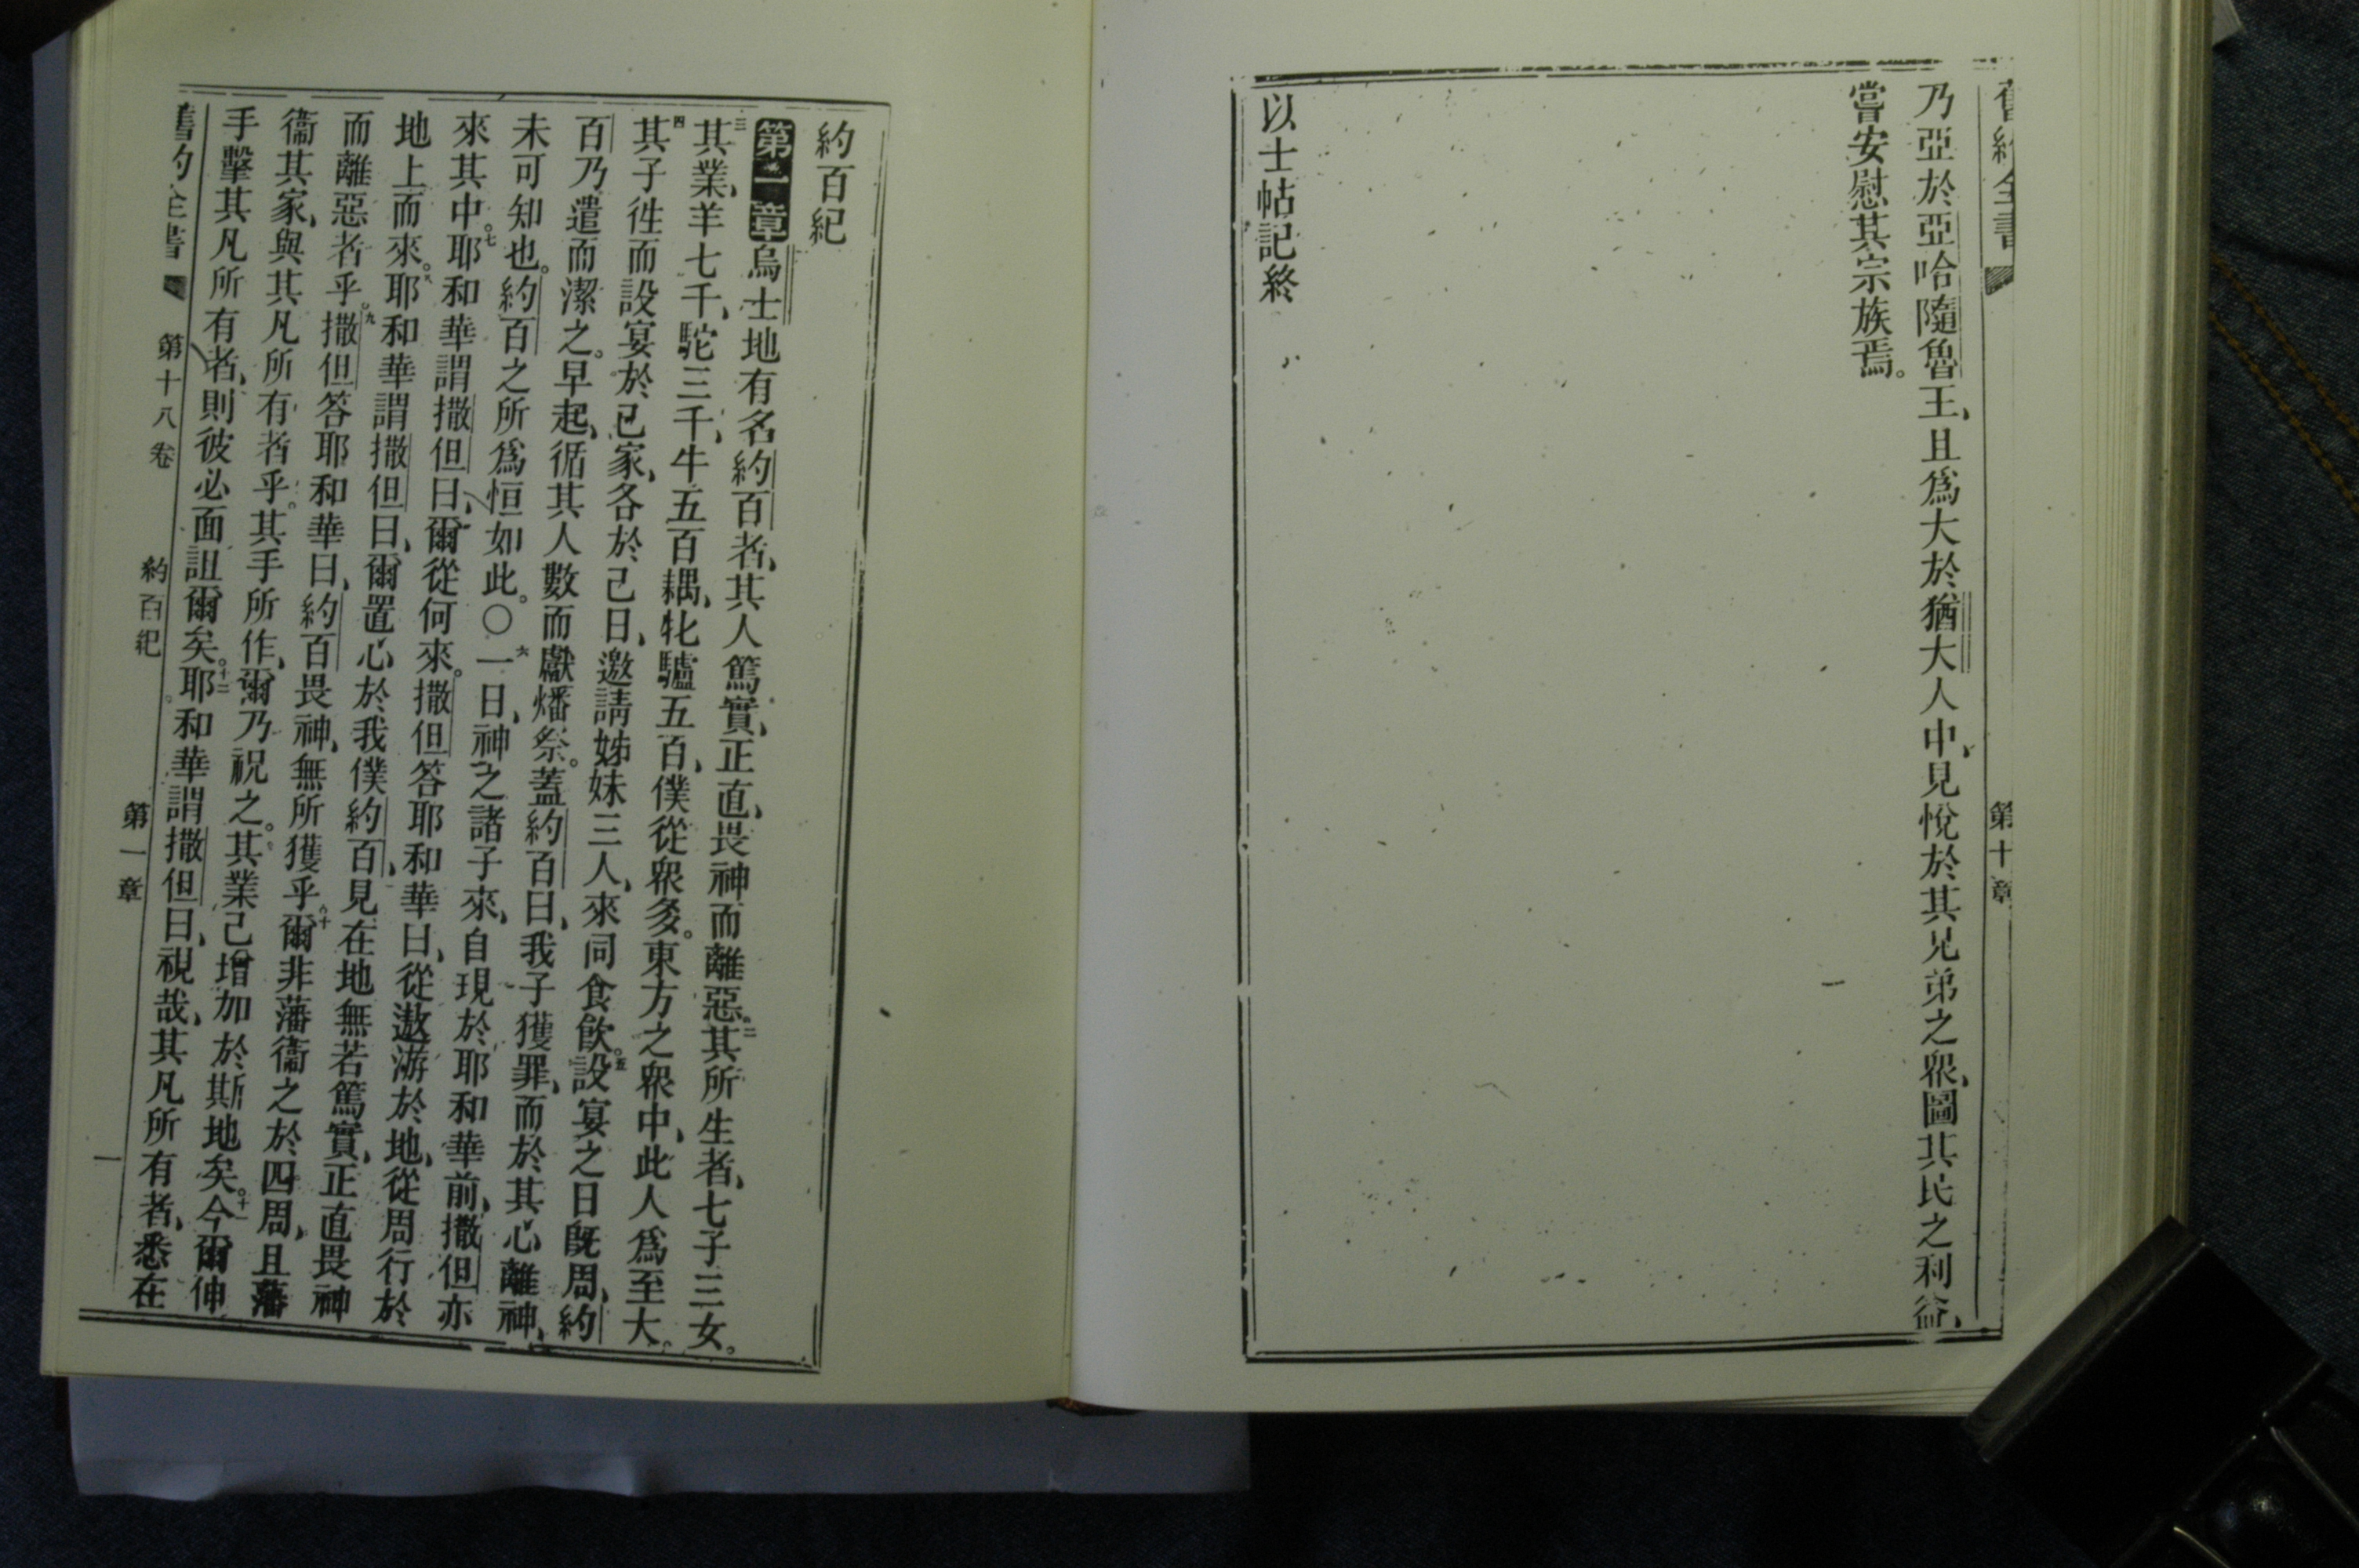 舊約全書 第十章
乃亞於亞哈隨魯王、且爲大於猶大人中、見悅於其兄弟之眾、圖其民之利益、
嘗安慰其宗族焉。
以士帖記終
約百紀
第一章烏士地有名約百者、其人篤實、正直、畏神而離惡。二其所生者、七子三女。
三其業、羊七千、駝三千、牛五百耦、牝驢五百、僕從眾多。東方之眾中、此人爲至大。
四其子徃而設宴於已家、各於己日、邀請姊妹三人、來同食飮。五設宴之日旣周、約
百乃遣而潔之。早起、循其人數而獻燔祭。蓋約百曰、我子獲罪、而於其心離神、
未可知也。約百之所爲恒如此。〇六一日、神之諸子來、自現於耶和華前、撒但亦
來其中。七耶和華謂撒但曰、爾從何來。撒但答耶和華曰、從遨游於地、從周行於
地上而來。八耶和華謂撒但曰、爾置心於我僕約百、見在地無若篤實、正直畏神
而離惡者乎。九撒但答耶和華曰、約百畏神、無所獲乎。十爾非藩衞之於四周、且藩
衞其家、與其凡所有者乎。其手所作、爾乃祝之。其業己增加於斯地矣。十一今爾伸
手擊其凡所有者、則彼必面詛爾矣。十二耶和華謂撒但曰、視哉、其凡所有者、悉在
舊約全書 第十八卷 約百紀 第一章 一